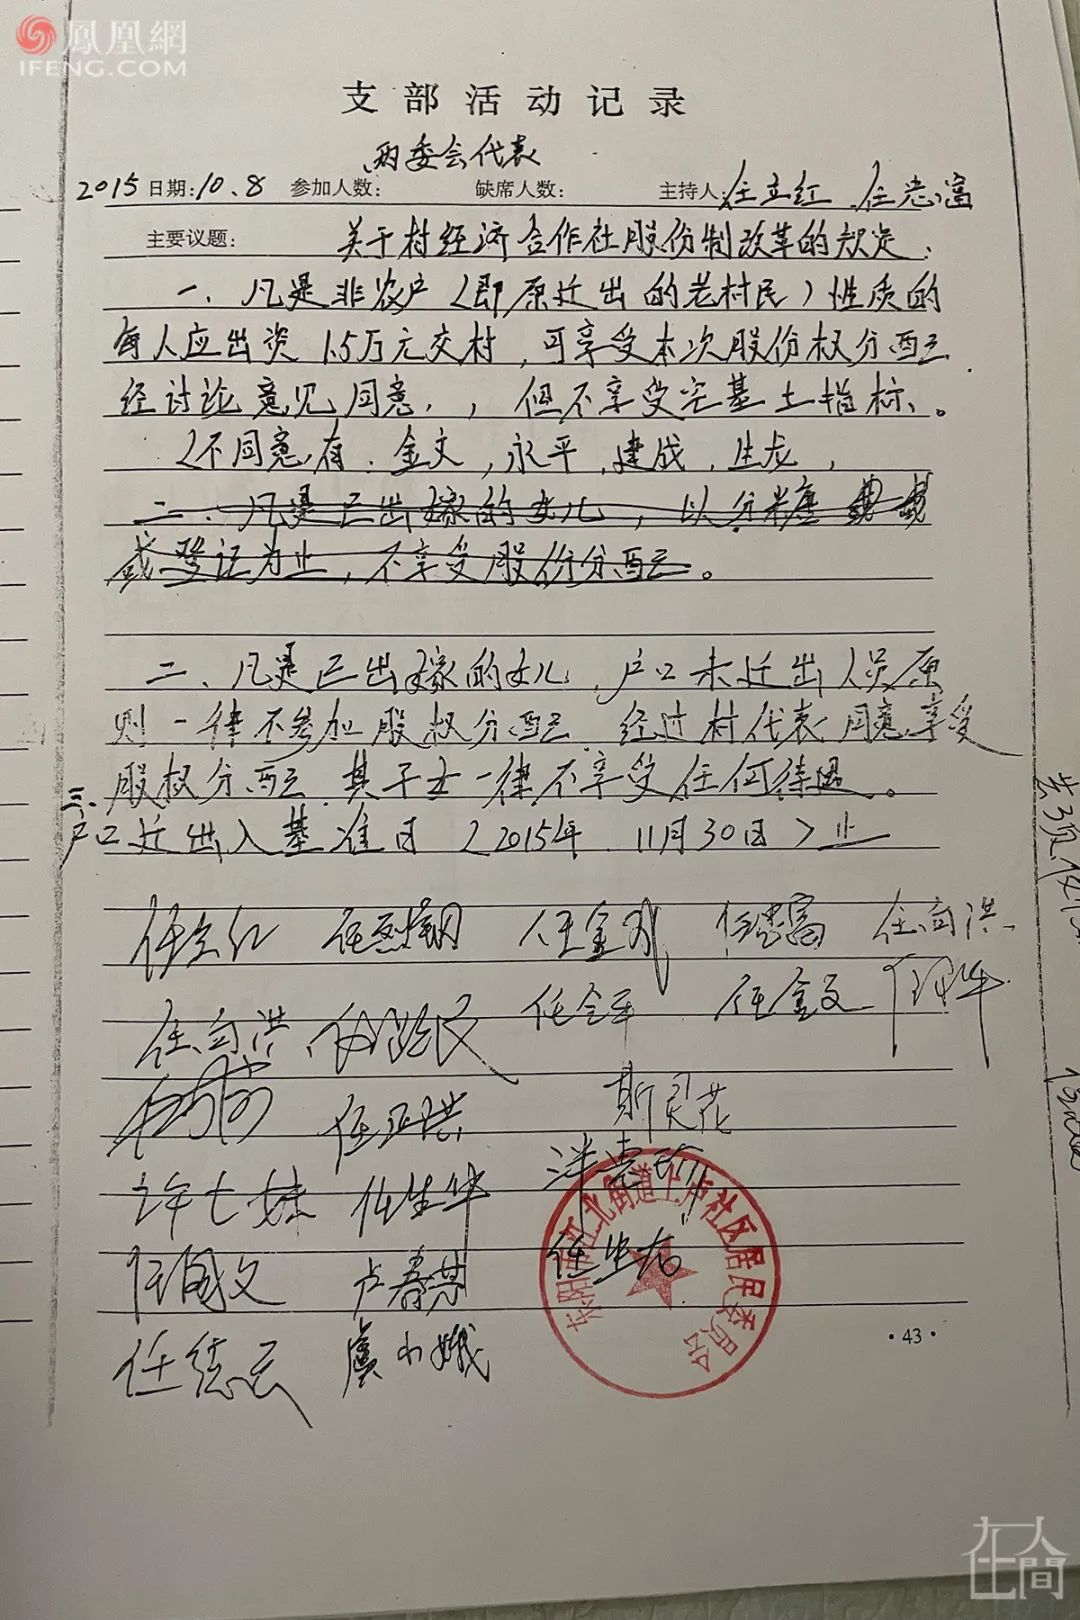 鳳凰網
IFENG.COM
支部活动记录
两委会代表
2015日期:10.8 参加人数: 缺席人数: 主持人:任立红、任忠富
主要议题: 关于村经济合作社股份制改革的规定:
一、凡是非农户(即原迁出的老村民)性质的
每人应出资1.5万元交村,可享受本次股份权分配
经讨论意见同意,,但不享受宅基土指标、。
(不同意有:金文,永平,建成,生龙,
二、凡是已出嫁的女儿,以分米
或登记为止,不享受股份分配。
二、凡是已出嫁的女儿,户口未迁出人员原
则一律不参加股权分配 经过村代表同意享受
股权分配 其子女一律不享受任何待遇。
三、
户口迁出入基准日(2015年 11月30日)止
任立红 任金 任忠富 任向洪
任向洪 任金平 任金文
任正洪 斯灵花
许七妹 任生华
任国文 卢春 任生龙
任德云 虞小娥
东阳市江北街道上卢社区居民委员会
·43·
在人間